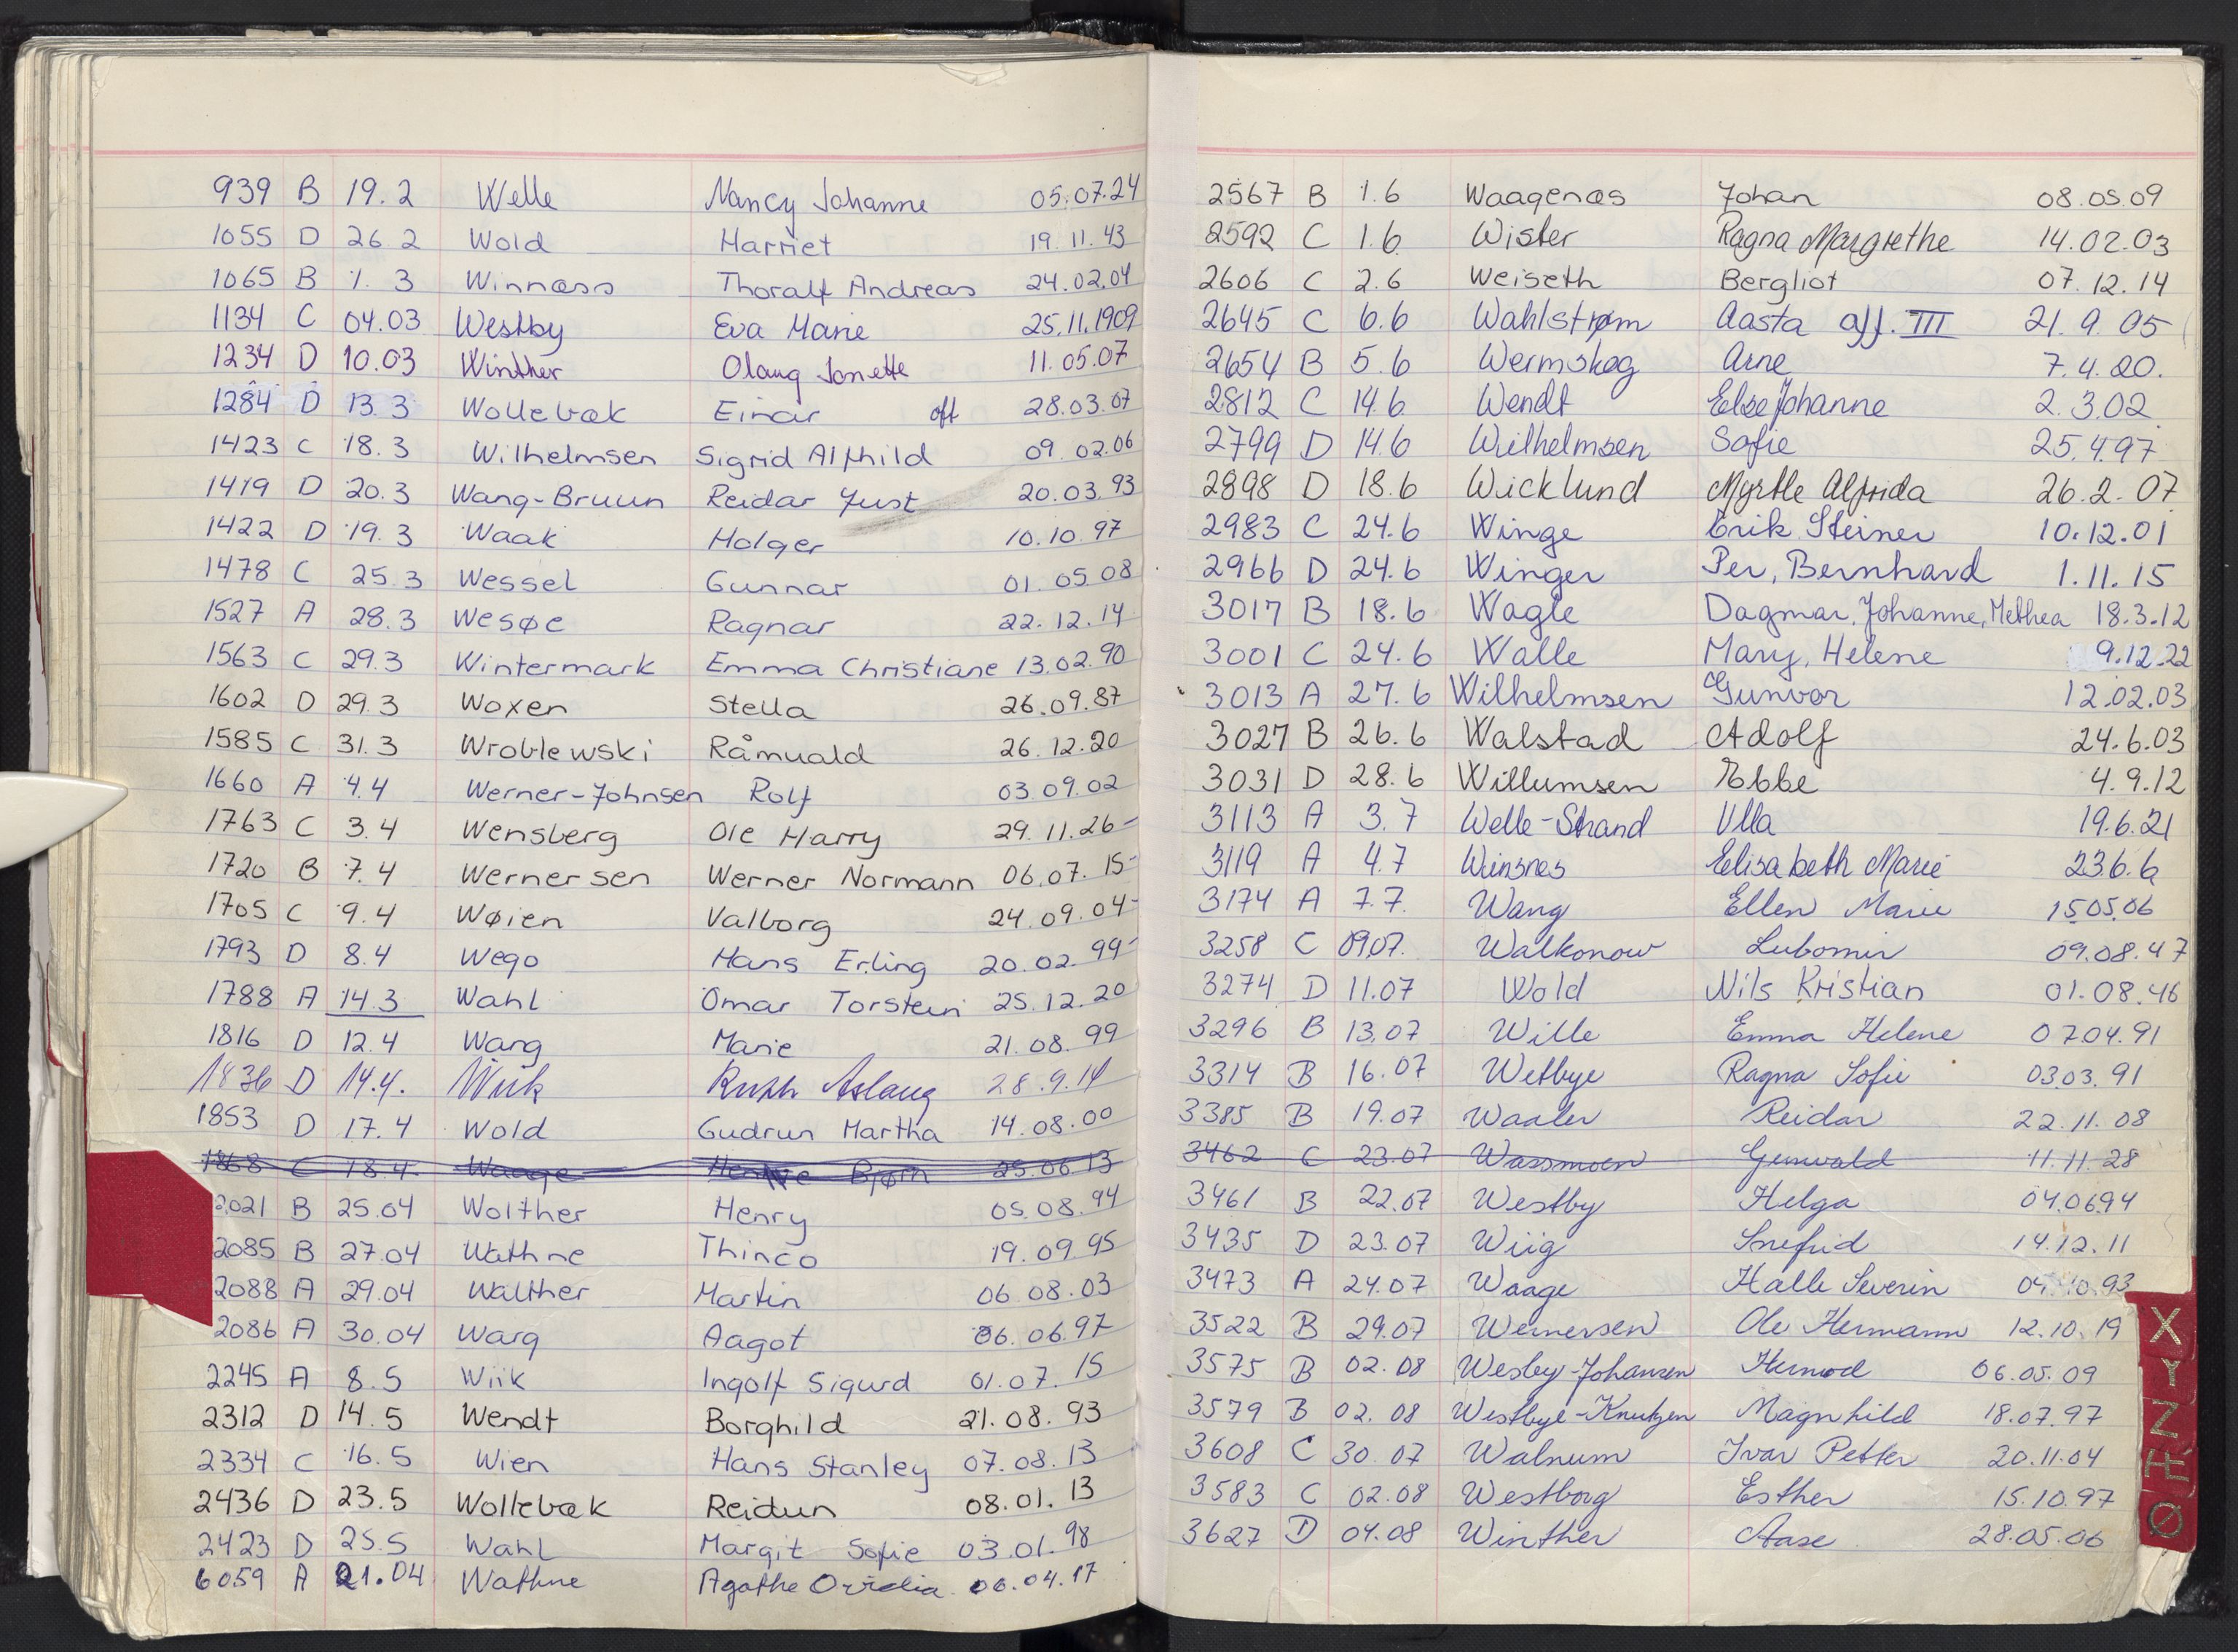 939 B 19.2 Welle Nancy Johanne 05.07.24
1055 D 26 2 Wold Harriet 19.11.43
1065 B 1. 3 Winnæss Thoralf Andreas 24.02.04
1134 C 04.03 Westby Eva Marie 25.11.1909
1234 D 10.03 Winther Olaug Jonette 11.05.07
1284 D 13.3 Wollebæk Einar off 28.03.07
1423 C 18.3 Wilhelmsen Sigrid Alfhild 09.02.06
1419 D 20.3 Wang-Bruun Reidar Just 20.03.93
1422 D 19.3 Waak Holger 10.10.97
1478 C 25.3 Wessel Gunnar 01.05.08
1527 A 28.3 Wesøe Ragnar 22.12.14
1563 C 29.3 Wintermark Emma Christiane 13.02.90
1602 D 29.3 Woxen Stella 26.09.87
1585 C 31.3 Wroblewski Råmuald 26.12.20
1660 A 4.4 Werner-Johnsen Rolf 03.09.02
1763 C 3.4 Wensberg Ole Harry 29.11.26-
1720 B 7.4 Wernersen Werner Normann 06.07.15-
1705 C 9.4 Wøien Valborg 24.09.04-
1793 D 8.4 Wego Hans Erling 20.02.99-
1788 A 14.3 Wahl Omar Torstein 25.12.20
1816 D 12.4 Wang Marie 21.08.99
1836 D 14.4. Wiik Ruth Aslaug 28.9.14
1853 D 17.4 Wold Gudrun Martha 14.08.00
1868 C 18.4 Waage Bjørn 25.06.13
2021 B 25.04 Wolther Henry 05.08.94
2085 B 27.04 Wathne Thinco 19.09.95
2088 A 29.04 Walther Martin 06.08.03
2086 A 30.04 Warg Aagot 06.06.97
2245 A 8.5 Wiik Ingolf Sigurd 01.07.15
2312 D 14.5 Wendt Borghild 21.08.93
2334 C 16.5 Wien Hans Stanley 07.08.13
2436 D 23.5 Wollebæk Reidun 08.01.13
2423 D 25.5 Wahl Margit Sofie 03.01.98
6059 A 21.04 Wathne Agathe Ovidia 06.04.17
2567 B 1.6 Waagenæs Johan 08.05.09
2592 C 1.6 Wister Ragna Margrethe 14.02.03
2606 C 2.6 Weiseth Bergliot 07.12.14
2645 C 6.6 Wahlstrøm Aasta off. III 21.9.05
2654 B 5.6 Wermskog Arne 7.4.20.
2812 C 14.6 Wendt Else Johanne 2.3.02
2799 D 14.6 Wilhelmsen Sofie 25.4.97
2898 D 18.6 Wicklund Myrtle Alfrida 26.2.07
2983 C 24.6 Winge Erik Steiner 10.12.01
2966 D 24.6 Winger Per, Bernhard 1.11.15
3017 B 18.6 Wagle Dagmar, Johanne, Methea 18.3.12
3001 C 24.6 Walle Mary, Helene 9.12.22
3013 A 27.6 Wilhelmsen Gunvor 12.02.03
3027 B 26.6 Walstad Adolf 24.6.03
3031 D 28.6 Willumsen Ebbe 4.9.12
3113 A 3.7 Welle-Strand Ulla 19.6.21
3119 A 4.7 Winsnes Elisabeth Marie 23.6.6
3174 A 7.7. Wang Ellen Marie 15.05.06
3258 C 09.07. Walkonow Lubomir 09.08.47
3274 D 11.07 Wold Nils Kristian 01.08.46
3296 B 13.07 Wille Emma Helene 07.04.91
3314 B 16.07 Wetbye Ragna Sofie 03.03.91
3385 B 19.07 Waaler Reidar 22.11.08
3462 C 23.07 Wassmoen Gunvald 11.11.28
3461 B 22.07 Westby Helga 04.06.94
3435 D 23.07 Wiig Snefrid 14.12.11
3473 A 24.07 Waage Halle Severin 04.10.93
3522 B 29.07 Weinersen Ole Hermann 12.10.19
3575 B 02.08 Wesley-Johansen Hermod 06.05.09
3579 B 02.08 Westbye-Knutzen Magnhild 18.07.97
3608 C 30.07 Walnum Ivar Petter 20.11.04
3583 C 02.08 Westborg Esther 15.10.97
3627 D 04.08 Winther Aase 28.05.06
X
Y
Z
Æ
Ø